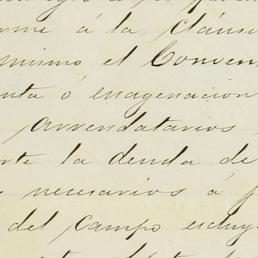 orme á la cláus
mismo el Conven
nta ó enagenacion
arrendatarios
nte la deuda de
necesarios á p
del campo escluy